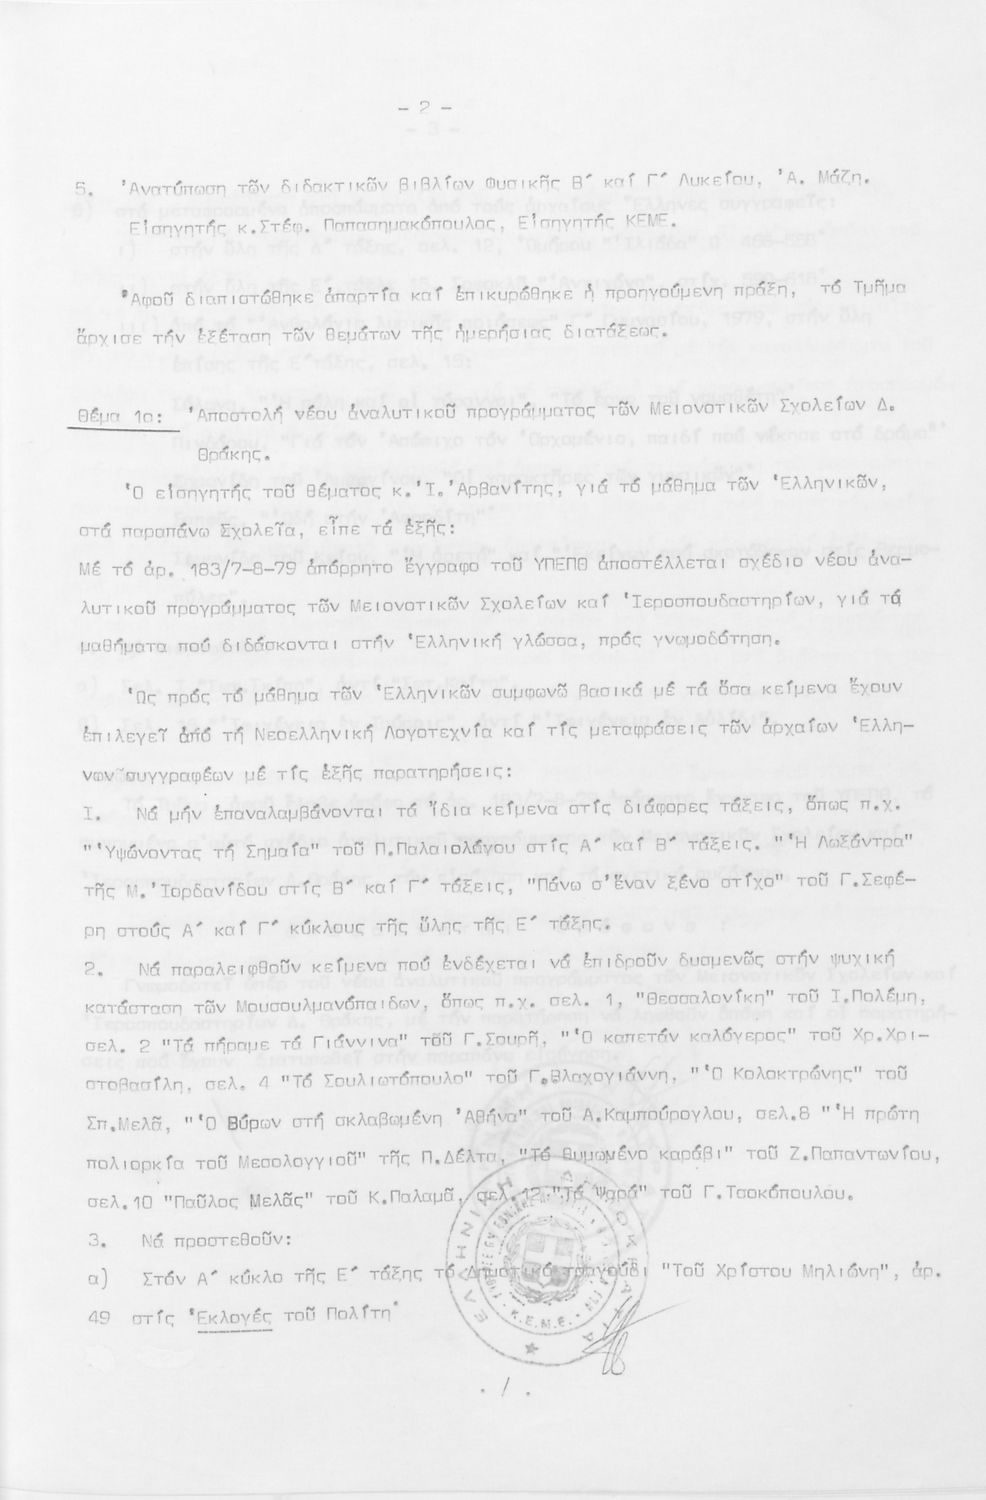 - 2 -
5. Ἀνατύπωση τῶν διδακτικῶν βιβλίων Φυσικῆς Β΄ καί Γ΄ Λυκείου, Ἀ. Μάζη.
Εἰσηγητής κ.Στέφ. Παπασημακόπουλος, Εἰσηγητής ΚΕΜΕ.
Ἀφοῦ διαπιστώθηκε ἀπαρτία καί ἐπικυρώθηκε ἡ προηγούμενη πράξη, τό Τμῆμα
ἄρχισε τήν ἐξέταση τῶν θεμάτων τῆς ἡμερήσιας διατάξεως.
Θέμα 1ο: Ἀποστολή νέου ἀναλυτικοῦ προγράμματος τῶν Μειονοτικῶν Σχολείων Δ.
Θράκης.
Ὁ εἰσηγητής τοῦ θέματος κ.Ἰ.Ἀρβανίτης, γιά τό μάθημα τῶν Ἑλληνικῶν,
στά παραπάνω Σχολεῖα, εἶπε τά ἑξῆς:
Μέ τό ἀρ. 183/7-8-79 ἀπόρρητο ἔγγραφο τοῦ ΥΠΕΠΘ ἀποστέλλεται σχέδιο νέου ἀνα-
λυτικοῦ προγράμματος τῶν Μειονοτικῶν Σχολείων καί Ἱεροσπουδαστηρίων, γιά τά
μαθήματα πού διδάσκονται στήν Ἑλληνική γλώσσα, πρός γνωμοδότηση.
Ὡς πρός τό μάθημα τῶν Ἑλληνικῶν συμφωνῶ βασικά μέ τά ὅσα κείμενα ἔχουν
ἐπιλεγεῖ ἀπό τή Νεοελληνική Λογοτεχνία καί τίς μεταφράσεις τῶν ἀρχαίων Ἑλλή-
νων συγγραφέων μέ τίς ἑξῆς παρατηρήσεις:
Ι. Νά μήν ἐπαναλαμβάνονται τά ἴδια κείμενα στίς διάφορες τάξεις, ὅπως π.χ.
"Ὑψώνοντας τή Σημαία" τοῦ Π.Παλαιολόγου στίς Α΄ καί Β΄ τάξεις. "Ἡ Λωξάντρα"
τῆς Μ.Ἰορδανίδου στίς Β΄ καί Γ΄ τάξεις, "Πάνω σ'ἕναν ξένο στίχο" τοῦ Γ.Σεφέ-
ρη στούς Α΄ καί Γ΄ κύκλους τῆς ὕλης τῆς Ε΄ τάξης.
2. Νά παραλειφθοῦν κείμενα πού ἐνδέχεται νά ἐπιδροῦν δυσμενῶς στήν ψυχική
κατάσταση τῶν Μουσουλμανόπαιδων, ὅπως π.χ. σελ. 1, "Θεσσαλονίκη" τοῦ Ι.Πολέμη,
σελ. 2 "Τά πήραμε τά Γιάννινα" τοῦ Γ.Σουρῆ, "Ὁ καπετάν καλόγερος" τοῦ Χρ.Χρι-
στοβασίλη, σελ. 4 "Τό Σουλιωτόπουλο" τοῦ Γ.Βλαχογιάννη, "Ὁ Κολοκτρώνης" τοῦ
Σπ.Μελᾶ, "Ὁ Βύρων στή σκλαβωμένη Ἀθήνα" τοῦ Α.Καμπούρογλου, σελ.8 "Ἡ πρώτη
πολιορκία τοῦ Μεσολογγιοῦ" τῆς Π.Δέλτα, "Τό θυμωμένο καράβι" τοῦ Ζ.Παπαντωνίου,
σελ.10 "Παῦλος Μελᾶς" τοῦ Κ.Παλαμᾶ, σελ.12 "Τά Ψαρά" τοῦ Γ.Τσοκόπουλου.
3. Νά προστεθοῦν:
α) Στόν Α΄ κύκλο τῆς Ε΄ τάξης τό Δημοτικό τραγούδι "Τοῦ Χρίστου Μηλιόνη", ἀρ.
49 στίς Ἐκλογές τοῦ Πολίτη
ΕΛΛΗΝΙΚΗ ΔΗΜΟΚΡΑΤΙΑ
Κ.Ε.Μ.Ε.
./.